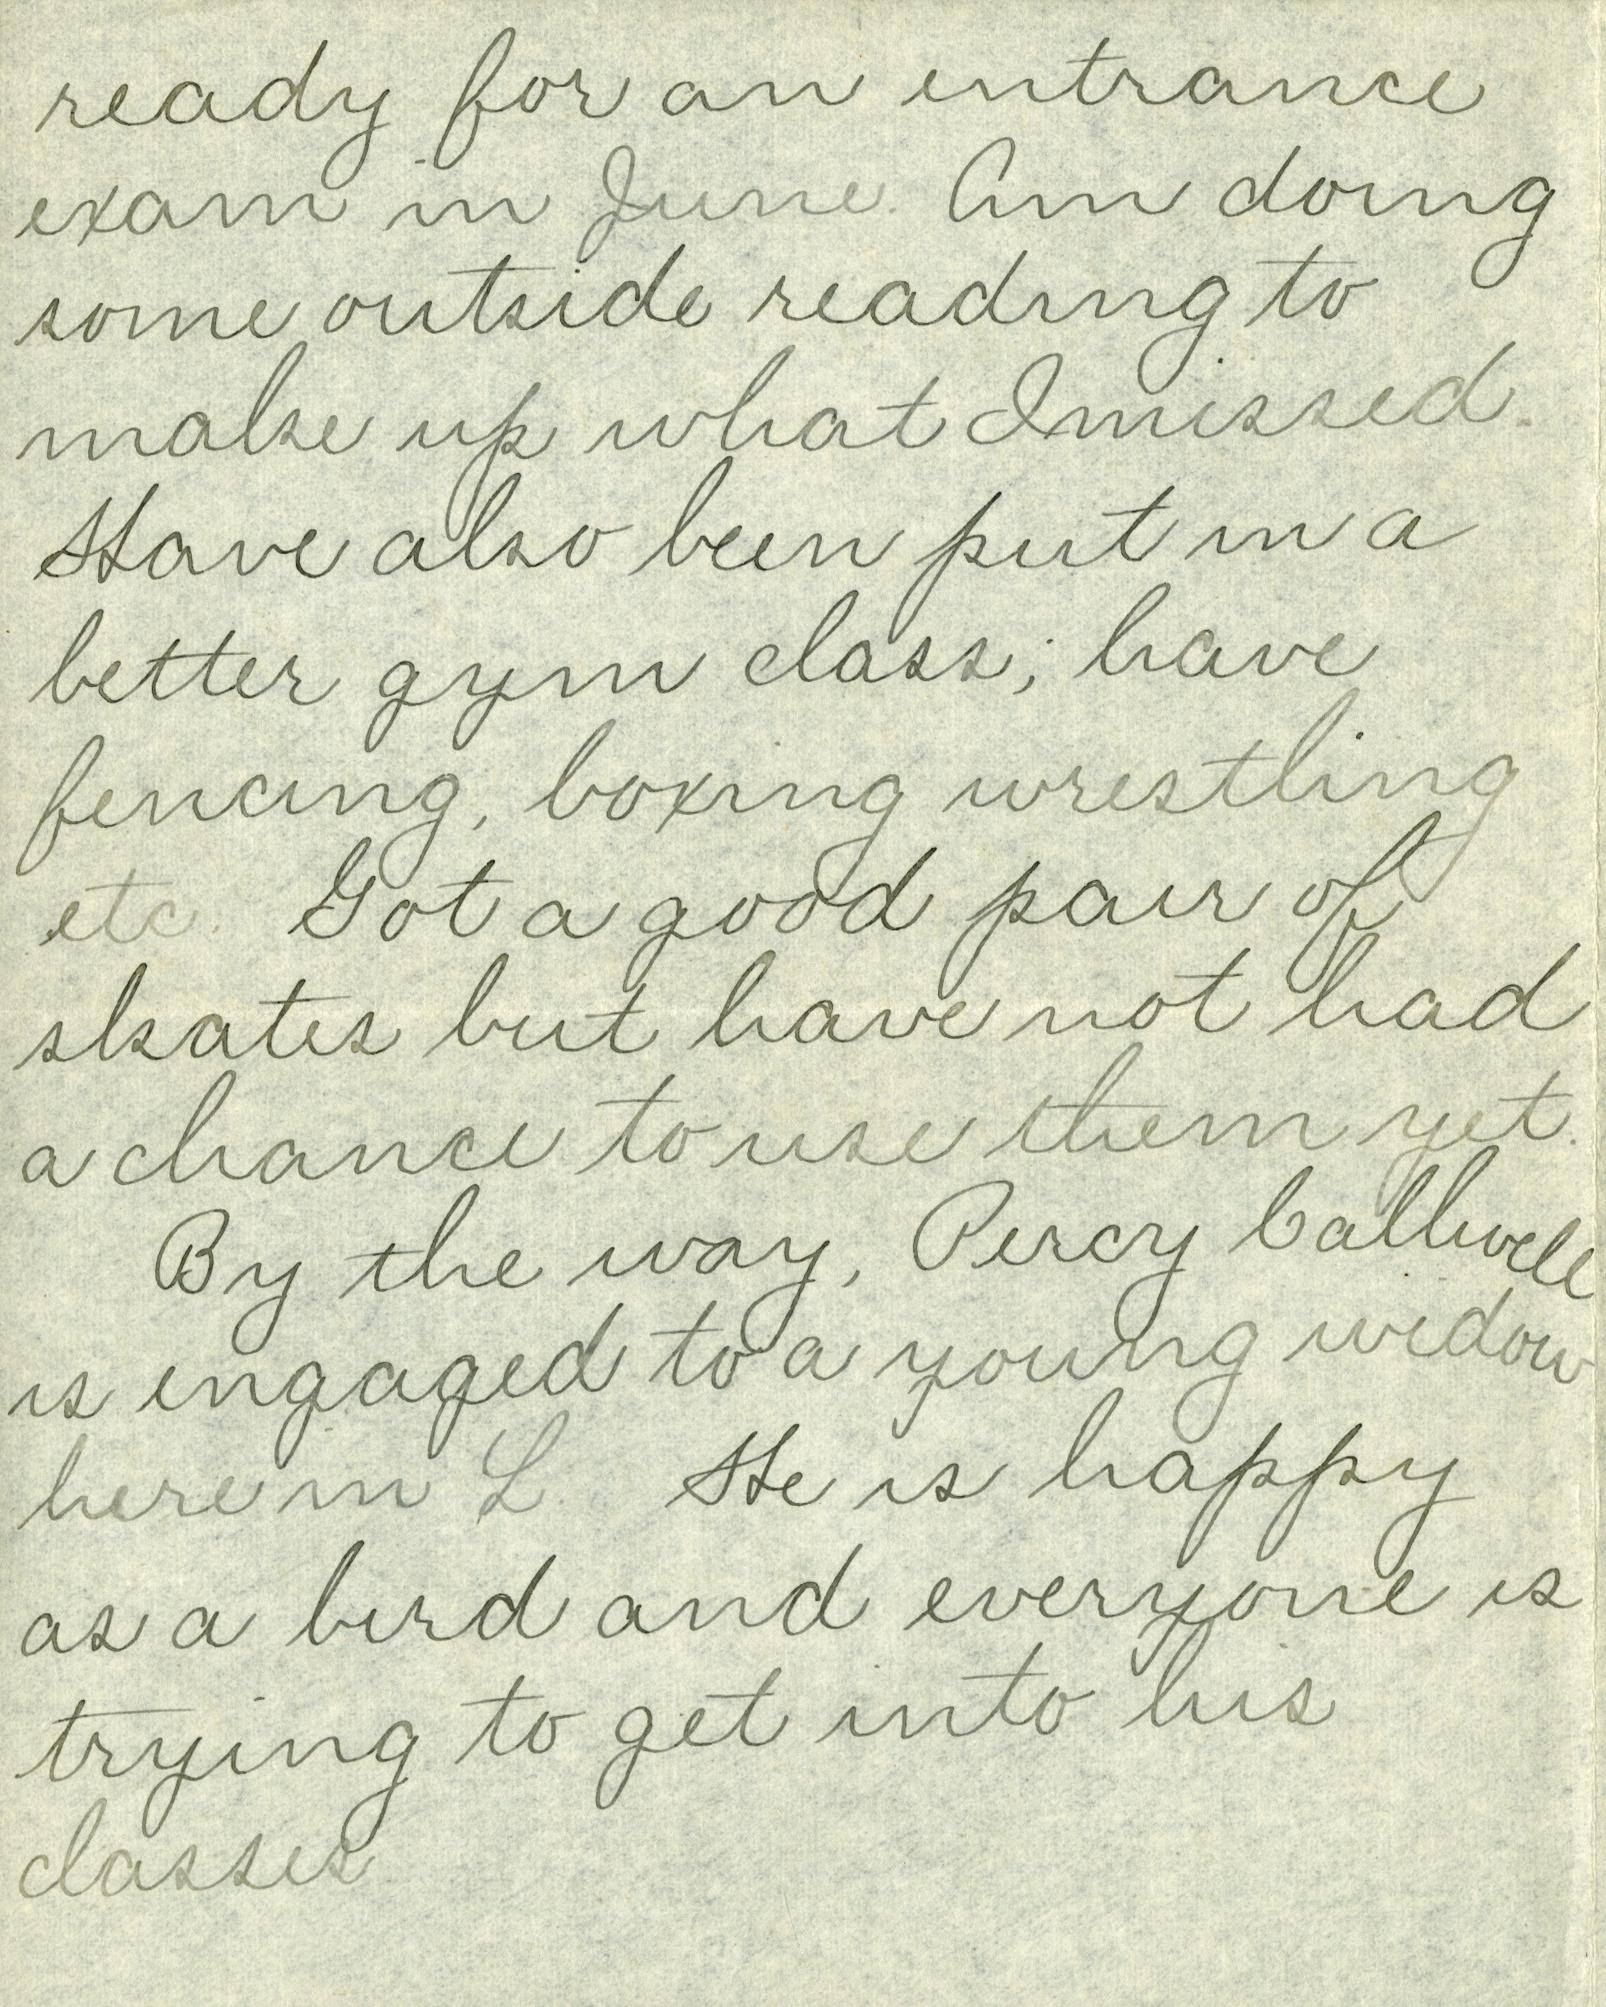 ready for an entrance
exam in June. Am doing
some outside reading to
make up what I missed.
Have also been put in a
better gym class; have
fencing, boxing wrestling
etc. Got a good pair of
skates but have not had
a chance to use them yet.
By the way, Percy Callwell
is engaged to a young widow
here in L. He is happy
as a bird and everyone is
trying to get into his
classes